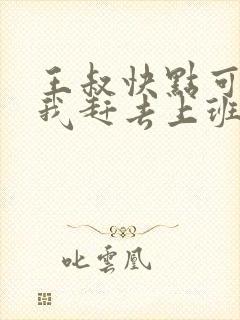 王叔快點可
我赶去上班
叱雲凰